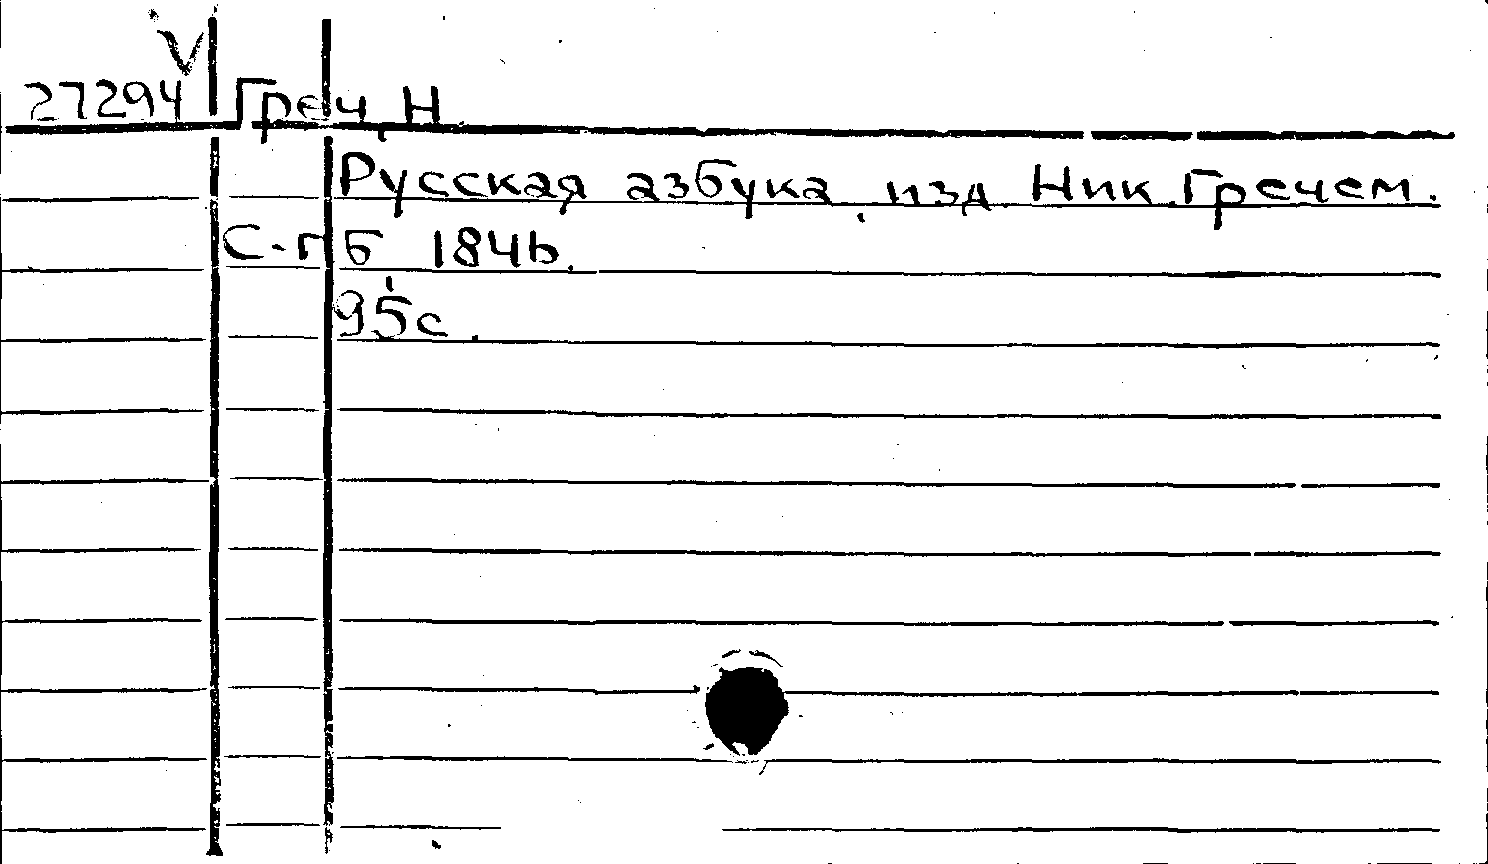 V
27294 Греч, Н.
Русская азбука, изд Ник Гречем.
С-пб 1846.
95с.